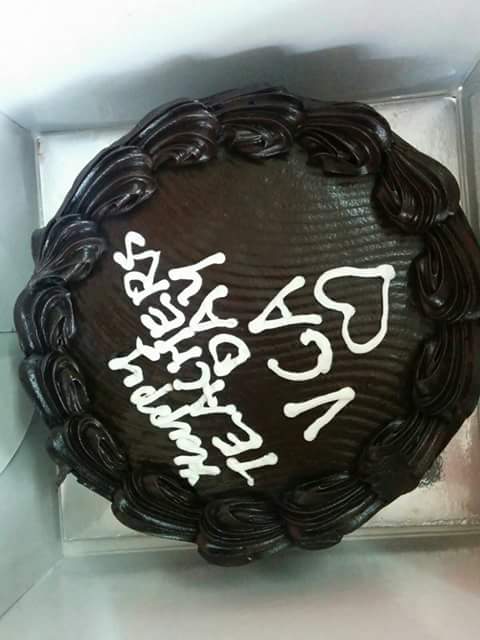 Happy
TEACHERS
DAY
VCA